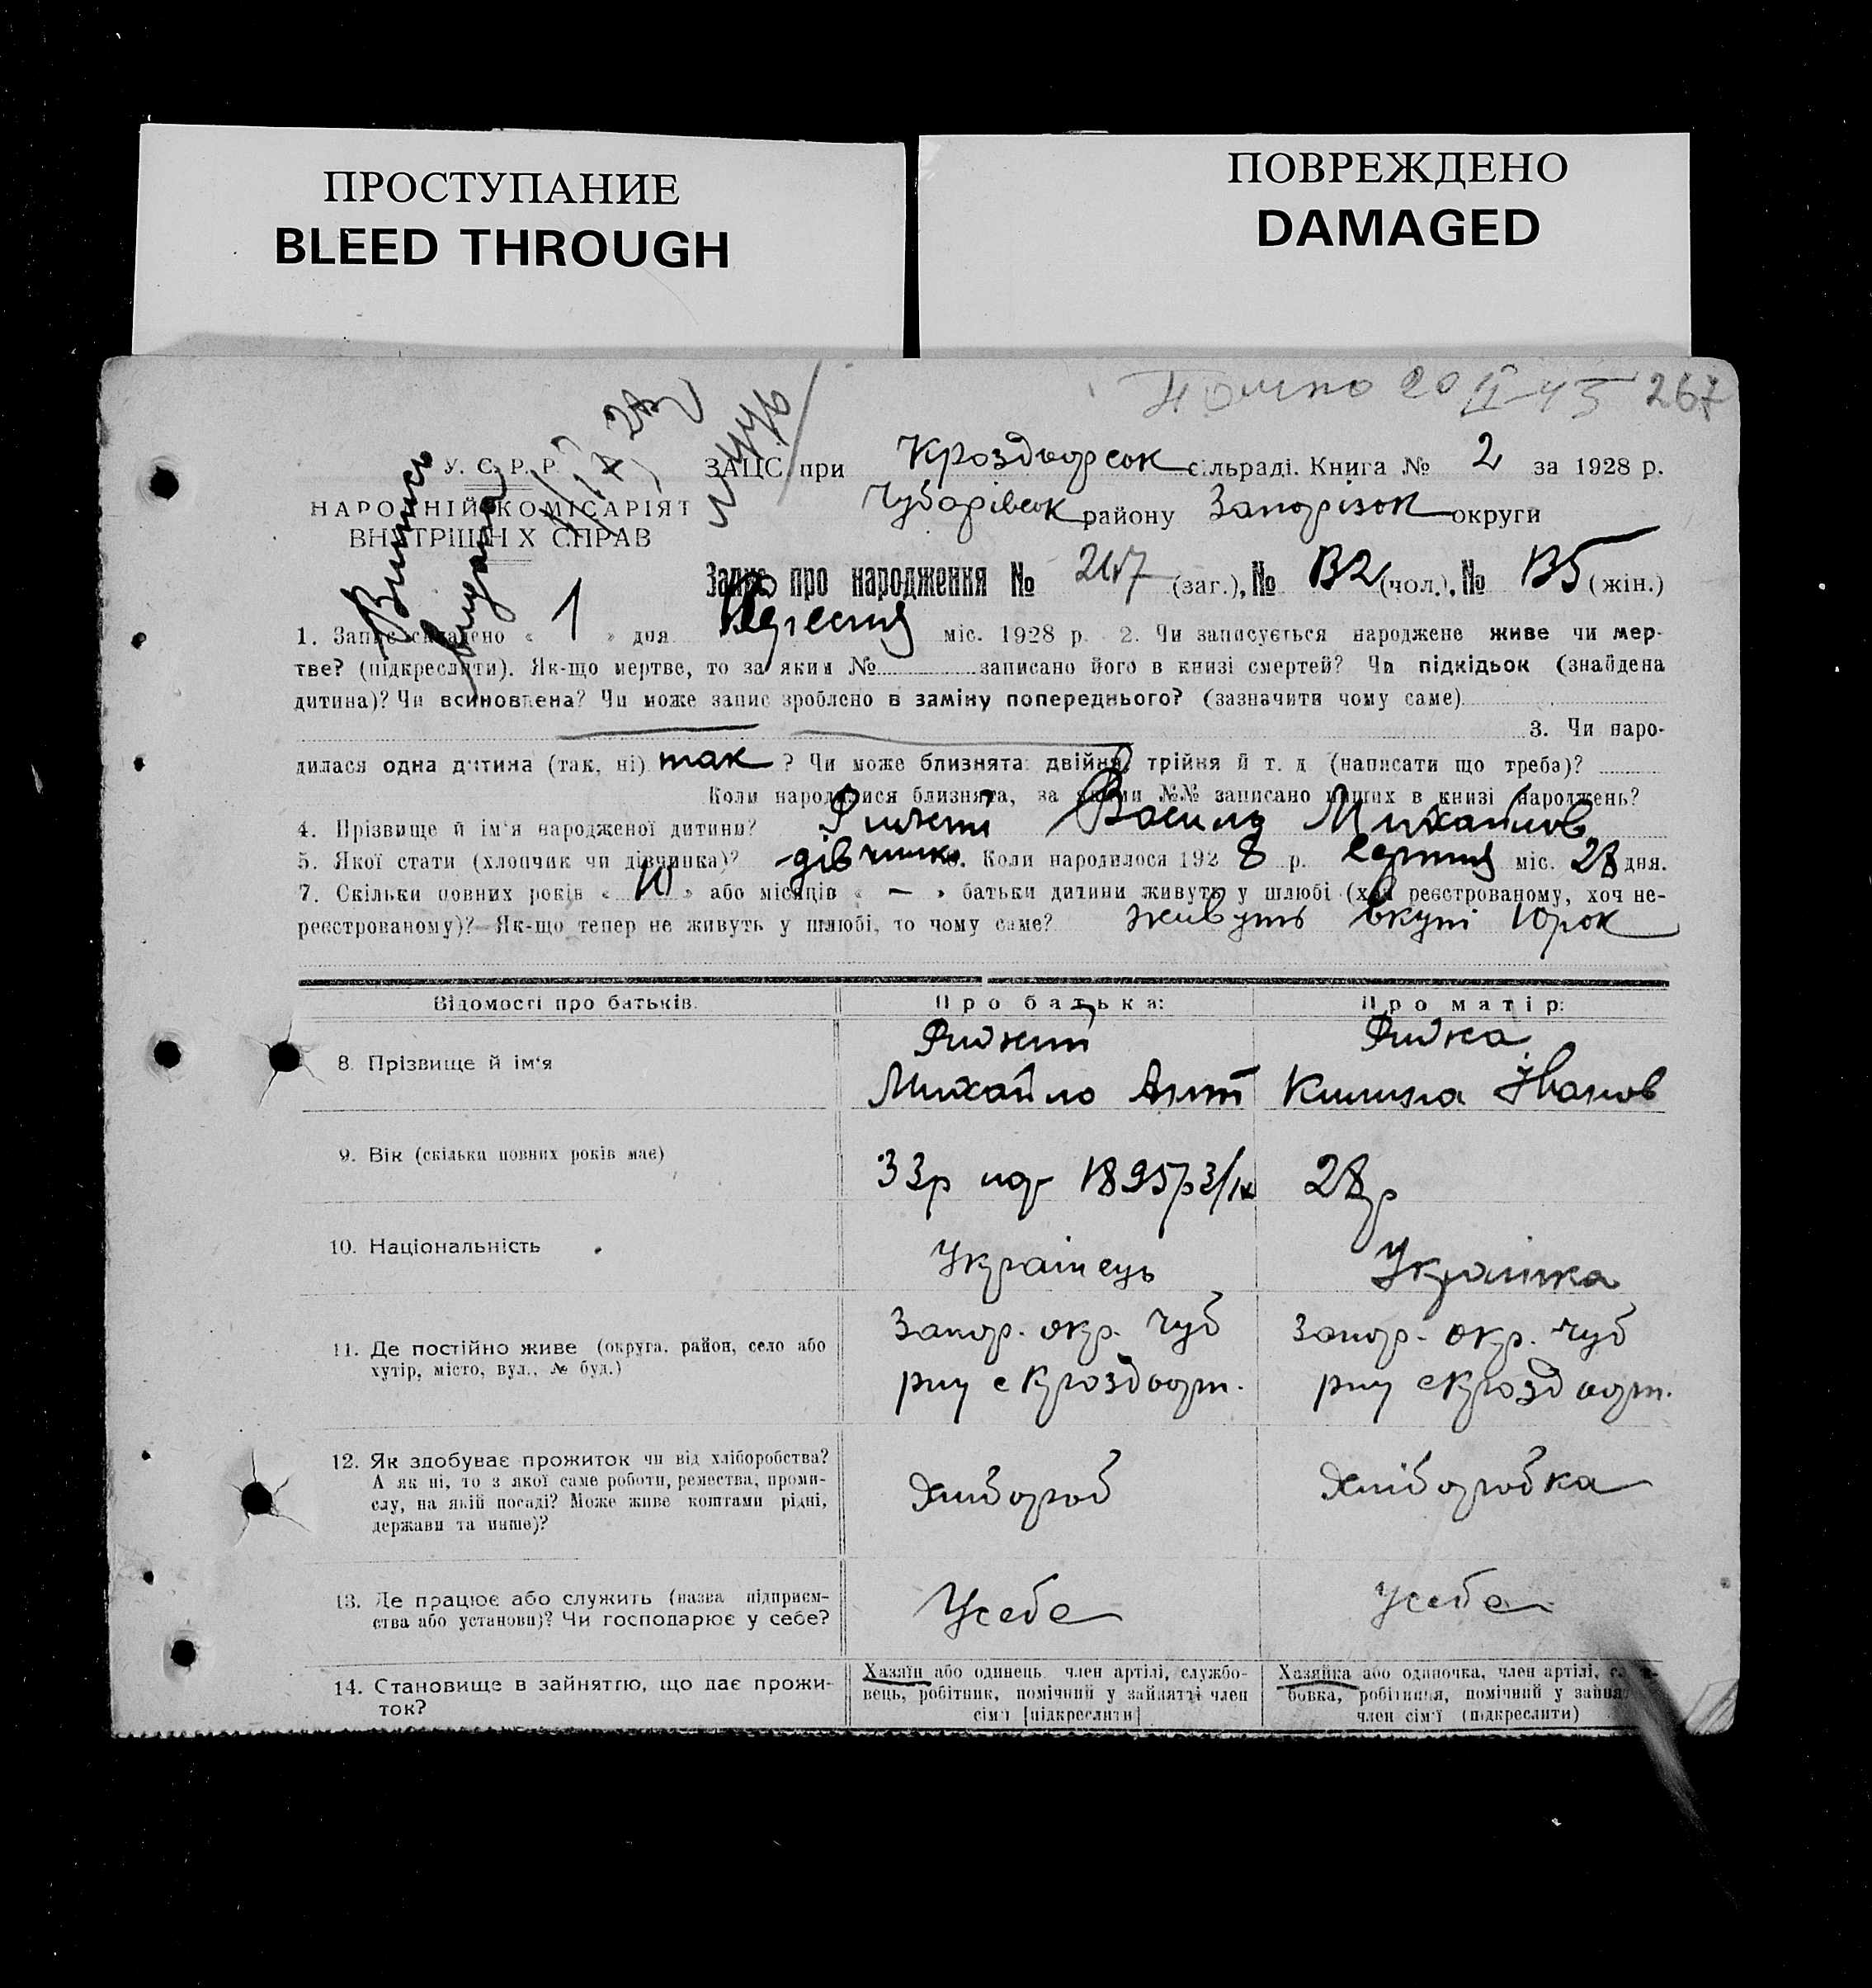 ПРОСТУПАНИЕ
BLEED THROUGH
ПОВРЕЖДЕНО
DAMAGED
20 II 45 267
У. С. Р. Р.
НАРОДНІЙ КОМІСАРІЯТ
ВНУТРІШНІХ СПРАВ
Випись
видана
ЗАЦС при Кроздворсок сільраді. Книга № 2 за 1928 р.
Чубарівсок району Запорізок округи
Запис про народження № 267 (заг.), № 132 (чол.), № 135 (жін.)
1. Запис складено « 1 » дня Вересня міс. 1928 р. 2. Чи записується народжене живе чи мер-
тве? (підкреслити). Як-що мертве, то за яким № записано його в книзі смертей? Чи підкідьок (знайдена
дитина)? Чи всиновлена? Чи може запис зроблено в заміну попереднього? (зазначити чому саме)
3. Чи наро-
дилася одна дитина (так, ні) так ? Чи може близнята: двійня, трійня й т. д. (написати що треба)?
Коли народилися близнята, за якими №№ записано инших в книзі народжень?
4. Прізвище й ім'я народженої дитини? Рижий Михайлов
5. Якої стати (хлопчик чи дівчинка)? дівчинка 6. Коли народилося 192 8 р. серпня міс. 28 дня.
7. Скільки повних років « 10 » або місяців « — » батьки дитини живуть у шлюбі (хоч реєстрованому, хоч не-
реєстрованому)? Як-що тепер не живуть у шлюбі, то чому саме? живуть вкупі 10 рок
Відомості про батьків. Про батька: Про матір:
8. Прізвище й ім'я
Рижий
Михайло Ант
Рижа
Килина Іванов
9. Вік (скільки повних років має) 33р 1895р 3/IX 28р
10. Національність Українець Українка
11. Де постійно живе (округа, район, село або
хутір, місто, вул., № буд.)
Запор. окр. Чуб
рну с Кроздворт.
Запор. окр. Чуб
рну с Кроздворт.
12. Як здобуває прожиток чи від хліборобства?
А як ні, то з якої саме роботи, ремества, проми-
слу, на якій посаді? Може живе коштами рідні,
держави та инше)?
Хлібороб
Хліборобка
13. Де працює або служить (назва підприєм-
ства або установи)? Чи господарює у себе?
Усебе
Усебе
14. Становище в зайняттю, що дає прожи-
ток?
Хазяїн або одинець, член артілі, службо-
вець, робітник, помічний у зайнятті член
сім'ї [підкреслити]
Хазяйка або одиночка, член артілі,
бовка, робітниця, помічний у
член сім'ї (підкреслити)